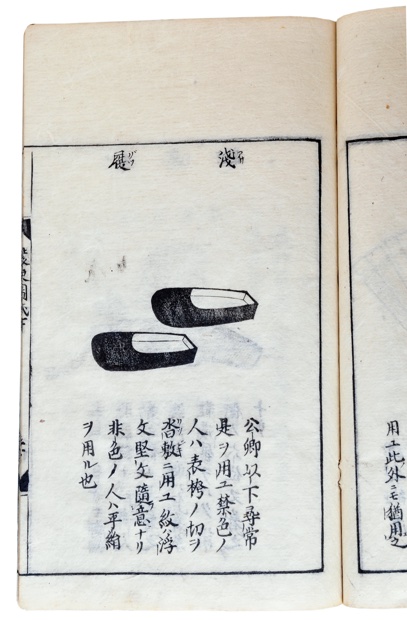 用エ此外ニモ猶用之
淺履
公卿以下尋常
是ヲ用エ禁色ノ
人ハ表袴ノ切ヲ
沓敷ニ用エ紋ハ浮
文堅文隨意ナリ
非色ノ人ハ平絹
ヲ用ル也